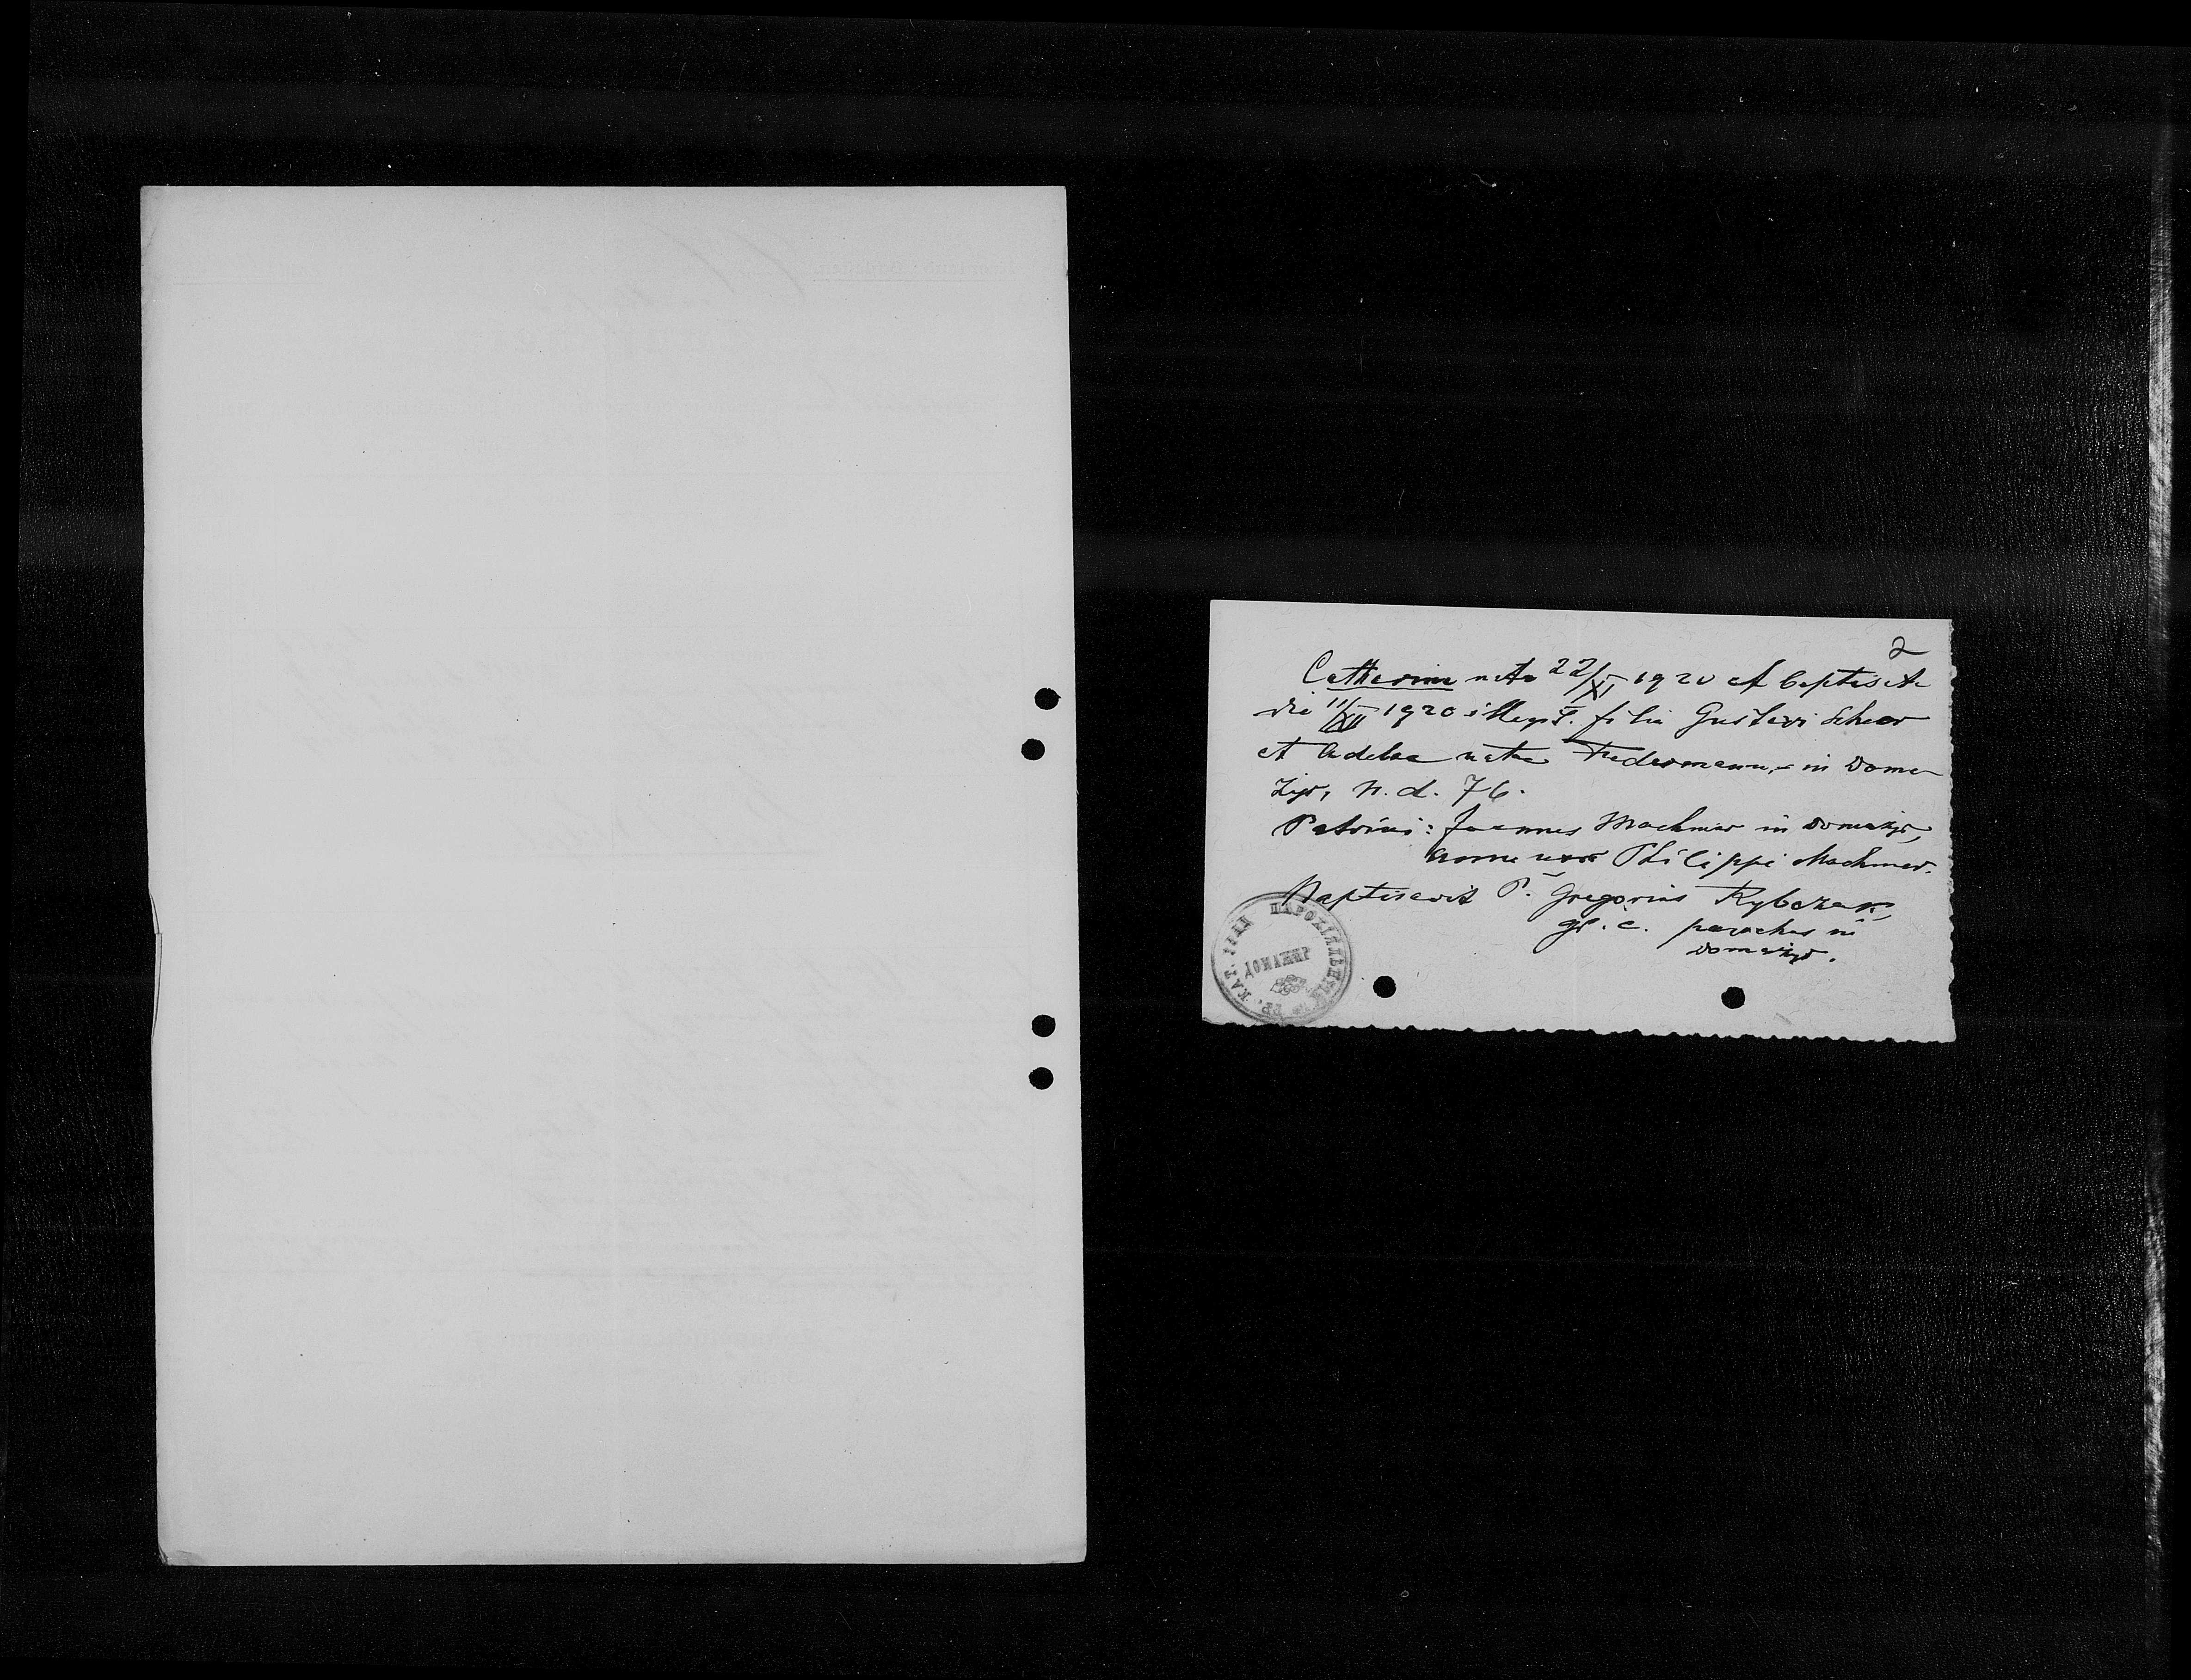 2
Catharina nata 22/XI 1920 et baptisata
die 11/XII 1920 illegit. filia Gustavi Scheer
et Adelae natae Federmann, in Doma-
żyr, N. d. 76.
Patrini: Joannes Machner in Domażyr,
Anna uxor Philippi Machner.
Baptisavit P. Gregorius Rybczak,
gr. c. parochus in
Domażyr.